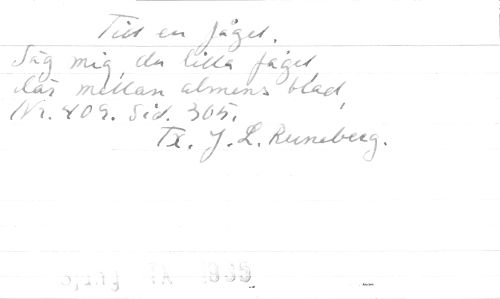 Till en fågel.
Säg mig, du lilla fågel,
där mellan almens blad,
Nr. 409. Sid. 305.
Tx. J. L. Runeberg.